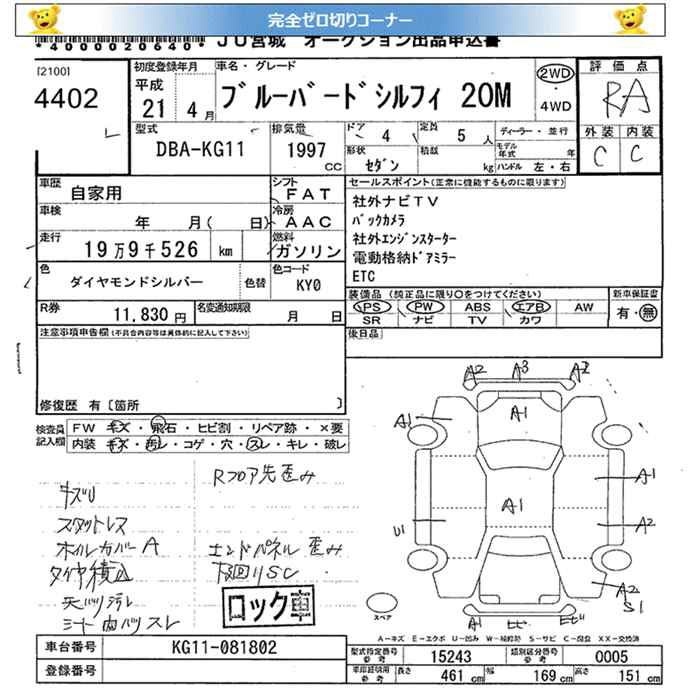 完全ゼロ切りコーナー
*4000020640* JU宮城 オークション出品申込書
[2100]
4402
初度登録年月
平成
21 4月
車名・グレード
ブルーバードシルフィ 20M
2WD
・
4WD
評価点
RA
外装 内装
C C
型式
DBA-KG11
排気量
1997 CC
ドア 4
定員 5 人
形状 セダン
積載 kg
ディーラー・並行
モデル年式 年
ハンドル 左・右
車歴 自家用
シフト FAT
車検 年 月( 日)
冷房 AAC
走行 19万9千526 km
燃料 ガソリン
色 ダイヤモンドシルバー
色替
色コード KY0
R券 11,830 円
名変通知期限 月 日
セールスポイント(正常に機能するものに限ります)
社外ナビTV
バックカメラ
社外エンジンスターター
電動格納ドアミラー
ETC
装備品 (純正品に限り○をつけてください)
PS PW ABS エアB AW
SR ナビ TV カワ
新車保証書
有・無
注意事項申告欄(不具合内容等は具体的に記入して下さい)
修復歴 有〔箇所 〕
後日品
検査員記入欄
FW キズ・飛石・ヒビ割・リペア跡・×要
内装 キズ・汚レ・コゲ・穴・スレ・キレ・破レ
Rフロア先歪み
キズU
スタットレス
ホイルカバーA
タイヤ積込
天バリ汚レ
シート内バリスレ
エンドパネル歪み
下回りSC
ロック車
A2 A3 A2
A1 A1
A1
A1
U1 A2
A2
S1
A1
スペア
A-キズ E-エクボ U-凹み W-補修跡 S-サビ C-腐食 XX-交換済
車台番号 KG11-081802
登録番号
型式指定番号参考 15243
類別区分番号参考 0005
車庫証明用参考
長さ 461 cm
幅 169 cm
高さ 151 cm